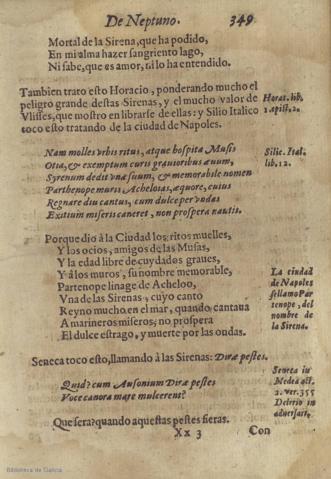 De Neptuno. 349
Mortal de la Sirena, que ha podido,
En mi alma hazer sangriento lago,
Ni sabe, que es amor, ni lo ha entendido.
Tambien trato esto Horacio, ponderando mucho el
peligro grande destas Sirenas, y el mucho valor de
Vlisses, que mostro en librarse de ellas: y Silio Italico
toco esto tratando de la ciudad de Napoles.
Horat. lib.
1. epist. 2.
Nam molles vrbis ritus, atque hospita Musis
Otia, & exemptum curis grauioribus æuum,
Syrenum dedit vna suum, & memorabile nomen
Parthenope muris Acheloias, æquore, cuius
Regnare diu cantus, cum dulce per vndas
Exitium miseris caneret, non prospera nautis.
Silic. Ital.
lib. 12.
Porque dio à la Ciudad los ritos muelles,
Y los ocios, amigos de las Musas,
Y la edad libre de cuydados graues,
Y à los muros, su nombre memorable,
Partenope linage de Acheloo,
Vna de las Sirenas, cuyo canto
Reyno mucho en el mar, quando cantaua
A marineros miseros; no prospera
El dulce estrago, y muerte por las ondas.
La ciudad
de Napoles
se llamo Par
tenope, del
nombre de
la Sirena.
Seneca toco esto, llamando à las Sirenas: Diræ pestes.
Quid? cum Ausonium Diræ pestes
Voce canora mare mulcerent?
Seneca in
Medea act.
2. ver. 355
Delerio in
aduersar.
Que sera? quando aquestas pestes fieras.
Xx 3 Con
Biblioteca de Galicia